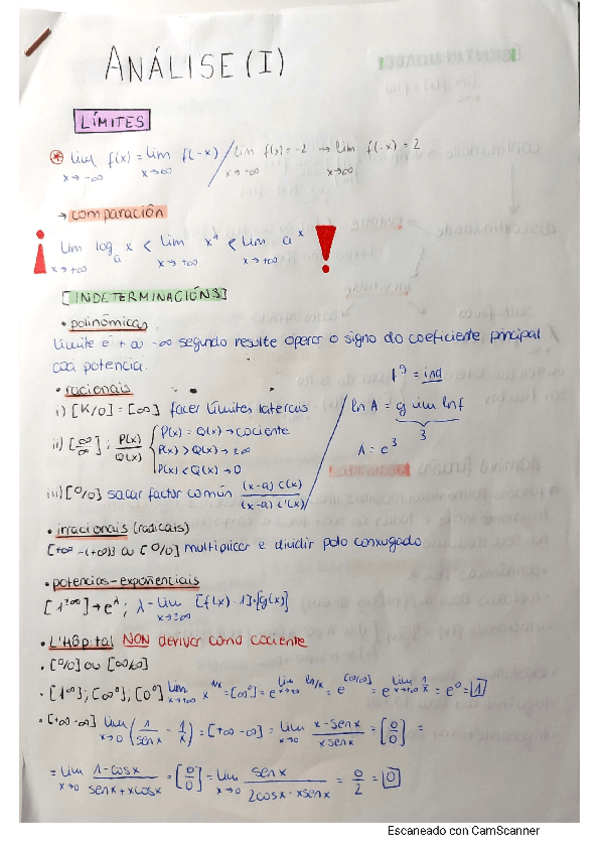 ANÁLISE (I)
LÍMITES
⊛ lim x→-∞ f(x) = lim x→∞ f(-x) / lim x→-∞ f(x) = -2 → lim x→∞ f(-x) = 2
→ comparación
¡ lim x→+∞ logₐ x < lim x→+∞ xⁿ < lim x→+∞ aˣ !
[INDETERMINACIÓNS]
• polinómicas
límite é +∞ ou -∞ segundo resulte operar o signo do coeficiente principal
coa potencia.
• racionais
i) [K/0] = [∞] facer límites laterais
ii) [∞/∞] ; P(x)/Q(x) { P(x) = Q(x) → cociente
P(x) > Q(x) → ±∞
P(x) < Q(x) → 0
iii) [0/0] sacar factor común (x-a) C(x) / (x-a) C'(x)
fᵍ = ind
ln A = g lim lnf
3
A = e³
• irracionais (radicais)
[+∞ -(+∞)] ou [0/0] multiplicar e dividir polo conxugado
• potencias-exponenciais
[1^±∞] → e^λ ; λ = lim x→±∞ [f(x) - 1]·[g(x)]
• L'Hôpital NON derivar como cociente
• [0/0] ou [∞/∞]
• [1^∞]; [∞⁰]; [0⁰] lim x→+∞ x^(1/x) = [∞⁰] = e^(lim x→+∞ lnx/x) = e^[∞/∞] = e^(lim x→+∞ 1/x) = e⁰ = 1
• [+∞ -∞] lim x→0 (1/senx - 1/x) = [+∞ -∞] = lim x→0 x-senx/xsenx = [0/0] =
= lim x→0 1-cosx/senx+xcosx = [0/0] = lim x→0 senx/2cosx-xsenx = 0/2 = 0
Escaneado con CamScanner